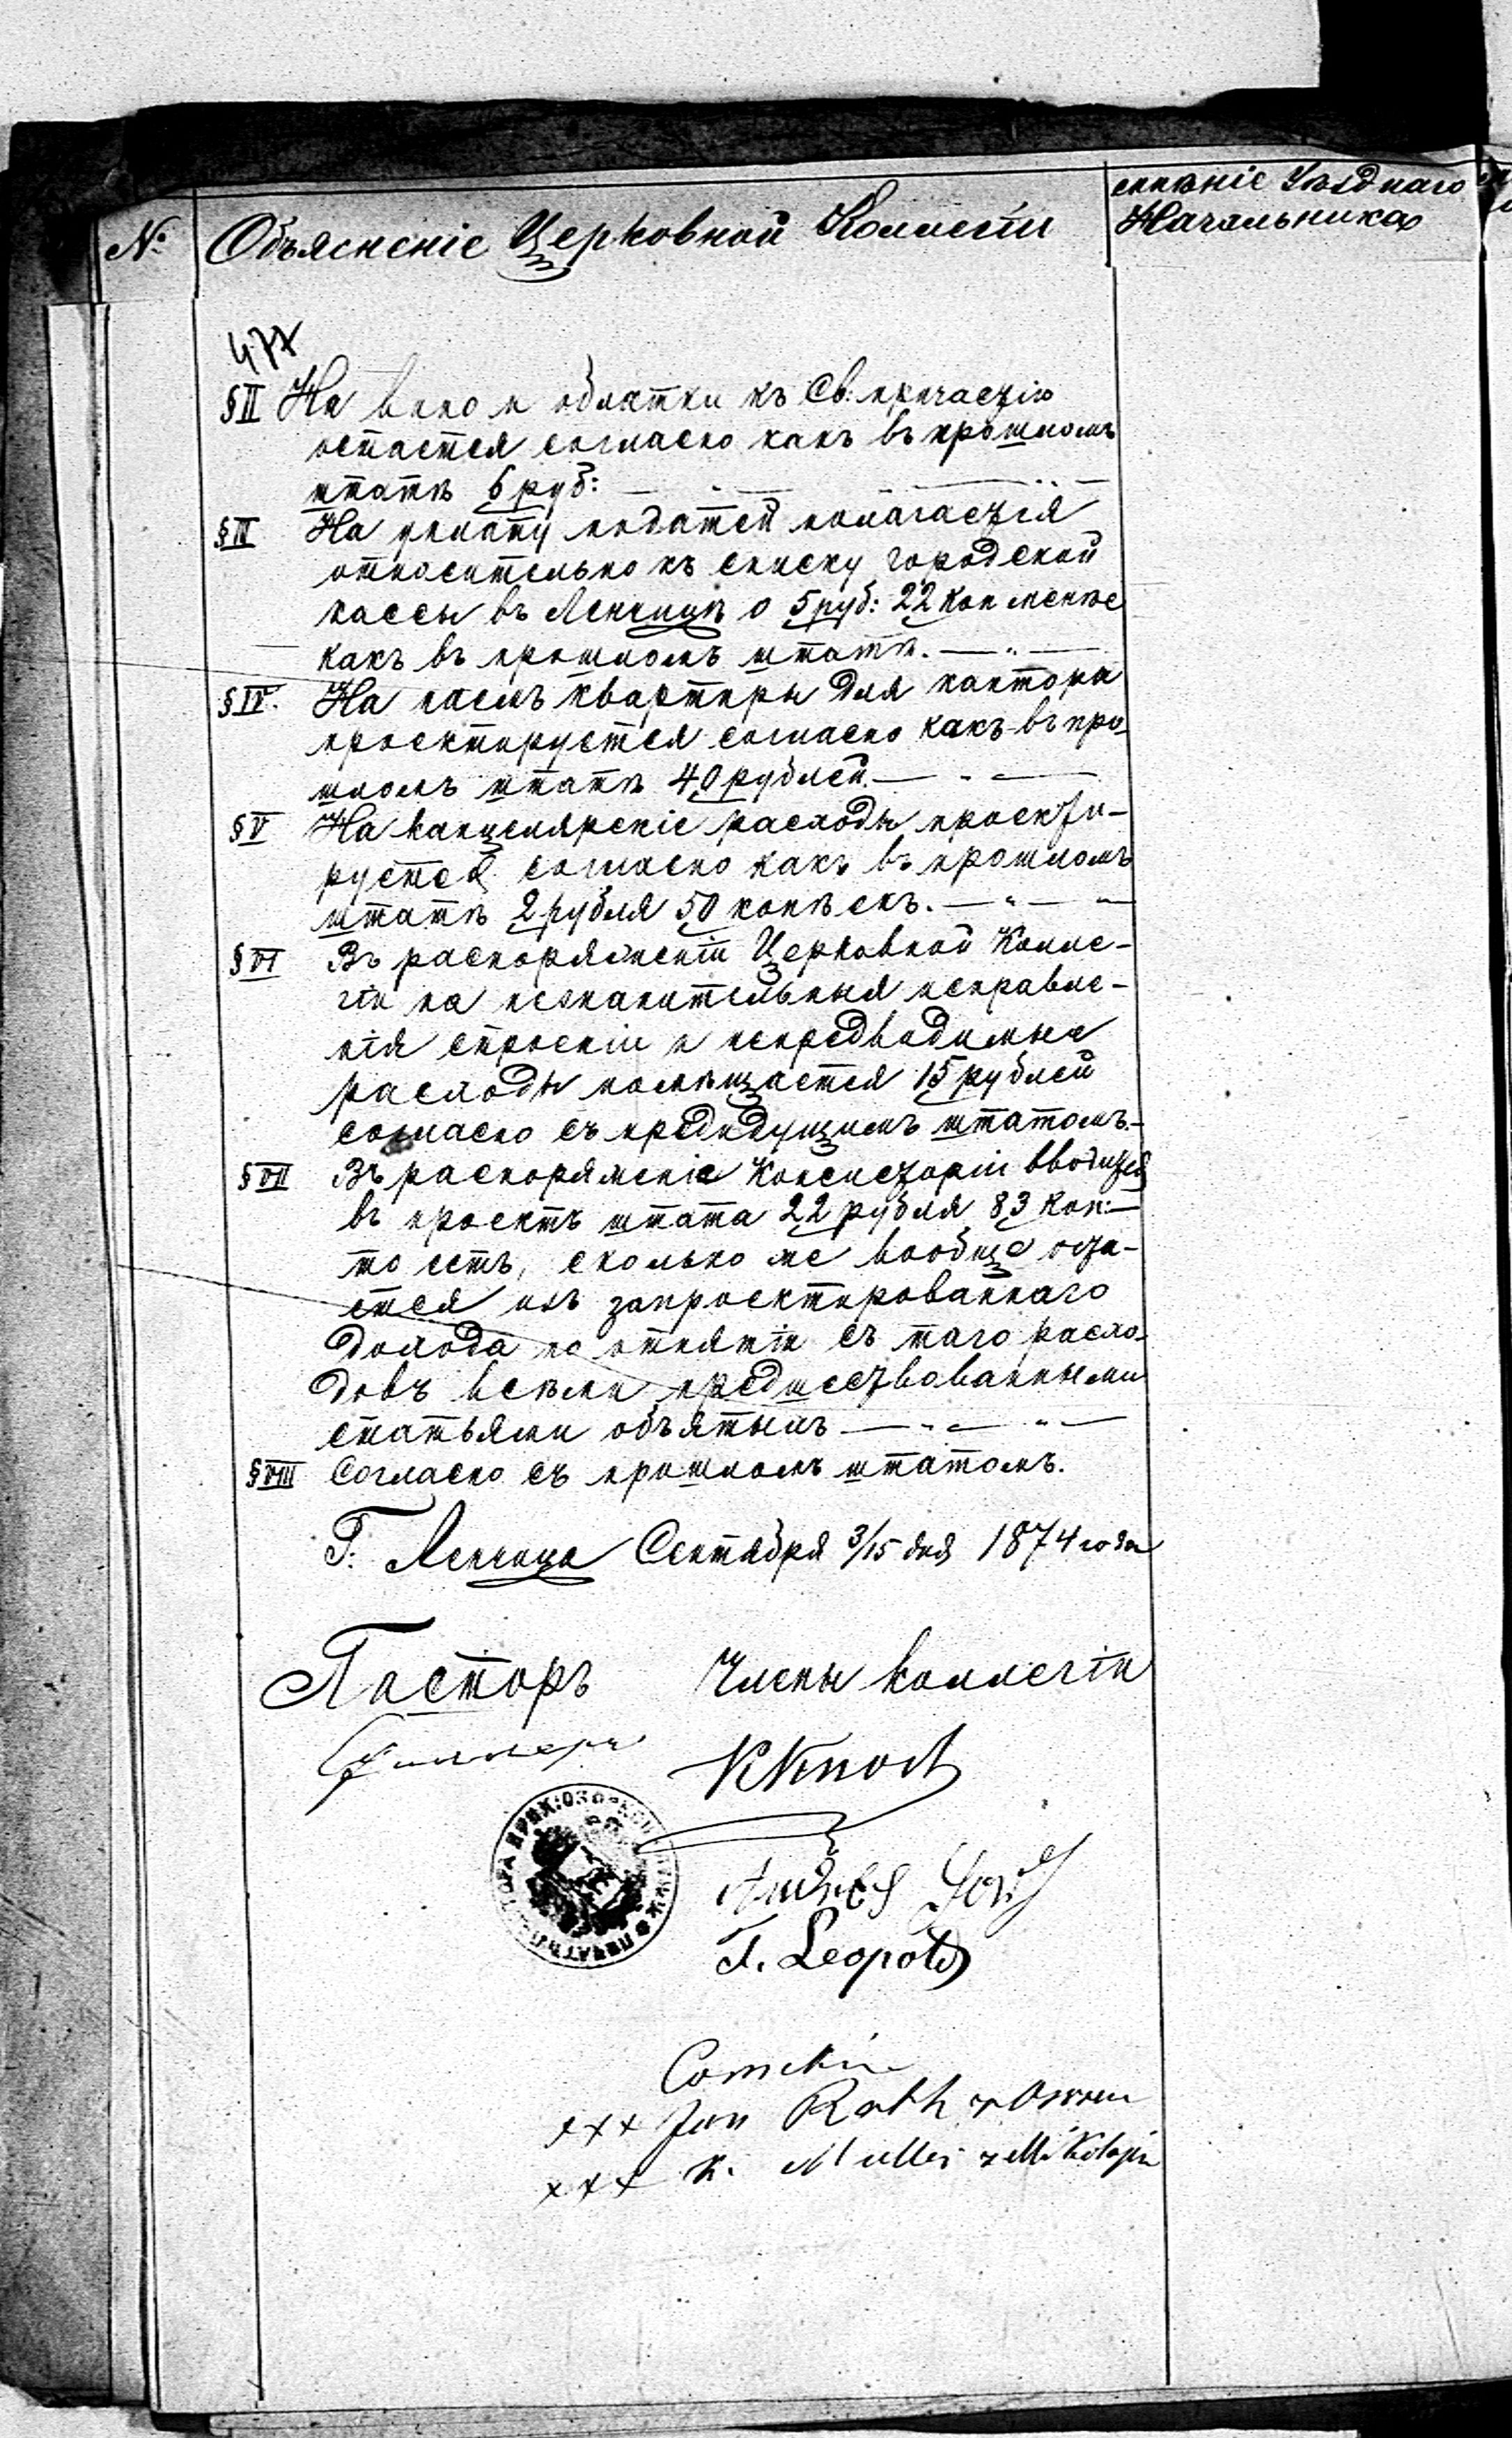 № Объясненіе Церковной Коллегіи
мнѣніе Уѣзднаго
Начальника
477
§ II На вино и облатки къ Св: причастію
остается согласно какъ въ прошломъ
штатѣ 6 руб:
§ III На уплату податей полагается
относительно къ списку городской
кассы въ Ленчицѣ о 5 руб: 22 коп менѣе
какъ въ прошломъ штатѣ.
§ IV. На наемъ квартиры для кантора
проектируется согласно какъ въ про-
шломъ штатѣ 40 рублей.
§ V На канцелярскіе расходы проекти-
руется согласно какъ въ прошломъ
штатѣ 2 рубля 50 копѣекъ.
§ VI Въ распоряженіи Церковной Колле-
гіи на незначительныя исправле-
нія строеніи и непредвидимые
расходы помѣщается 15 рублей
согласно съ предидущимъ штатомъ.
§ VII Въ распоряженіе Консисторіи вводится
въ проектъ штата 22 рубля 83 коп:
то есть, сколько же вообще оста-
ется изъ запроектированнаго
дохода по отнятіи съ таго расхо-
довъ всѣми предшествованными
статьями объятыхъ
§ VIII Согласно съ прошломъ штатомъ.
Г: Ленчица Сентября 3/15 дня 1874 года
Пасторъ Члены коллегіи
K Knoll
Andreas
T. Leopold
xxx Jan Rath z
xxx K. Muller z Mikołajew